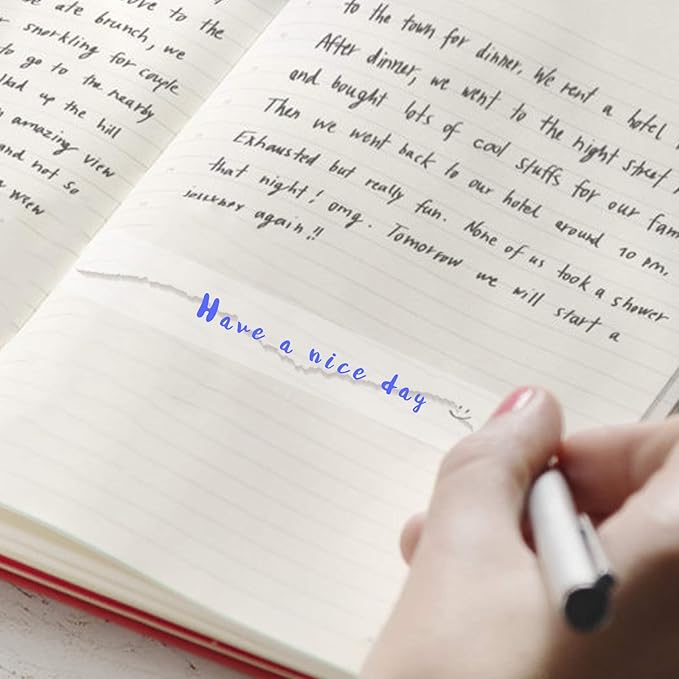 ove to the
e ate brunch, we
r snorkling for couple
to go to the nearby
lked up the hill
n amazing view
and not so
to the town for dinner. We rent a hotel
After dinner, we went to the night street
and bought lots of cool stuffs for our fam
Then we went back to our hotel around 10 pm.
Exhausted but really fun. None of us took a shower
that night! omg. Tomorrow we will start a
journey again!!
Have a nice day